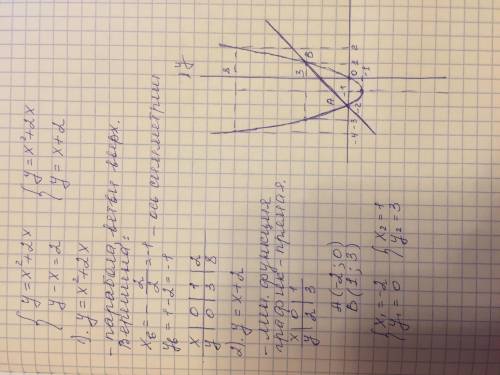 { y = x² + 2x   { y = x² + 2x
{ y - x = 2   { y = x + 2
1) y = x² + 2x
- парабола, ветви вверх.
Вершина:
x₆ = - 2/2 = -1 - ось симметрии
y₆ = 1 - 2 = -1
x | 0 | 1 | 2
y | 0 | 3 | 8
2) y = x + 2
- лин. функция
график - прямая.
x | 0 | 1
y | 2 | 3
A (-2; 0)
B (1; 3)
{ x₁ = -2   { x₂ = 1
{ y₁ = 0   { y₂ = 3
y
8
3
A
B
-4 -3 -2 -1 0 1 2
-1